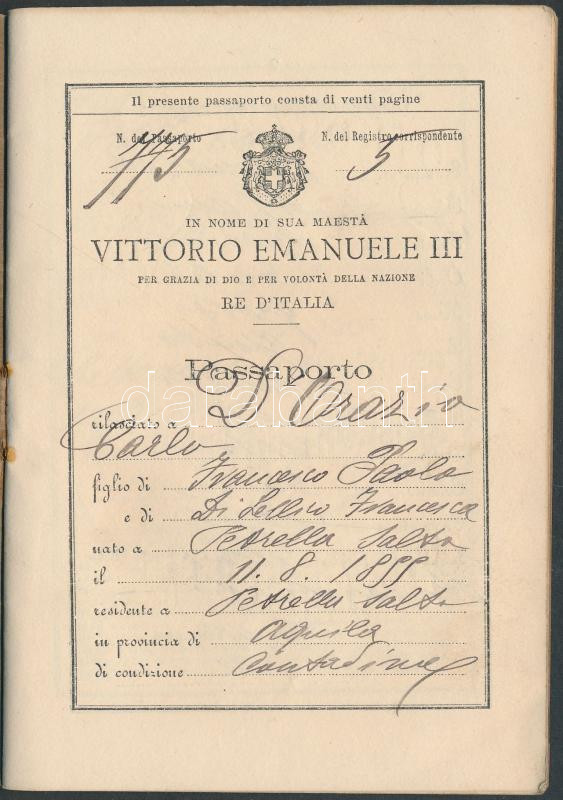 Il presente passaporto consta di venti pagine
N. del Passaporto N. del Registro corrispondente
5
IN NOME DI SUA MAESTÀ
VITTORIO EMANUELE III
PER GRAZIA DI DIO E PER VOLONTÀ DELLA NAZIONE
RE D'ITALIA
Passaporto
darabanth
rilasciato a D'Orazio
Carlo
figlio di Francesco Paolo
e di Di Lellio Francesca
nato a Petrella Salto
il 11. 8. 1899
residente a Petrella Salto
in provincia di Aquila
di condizione Contadino